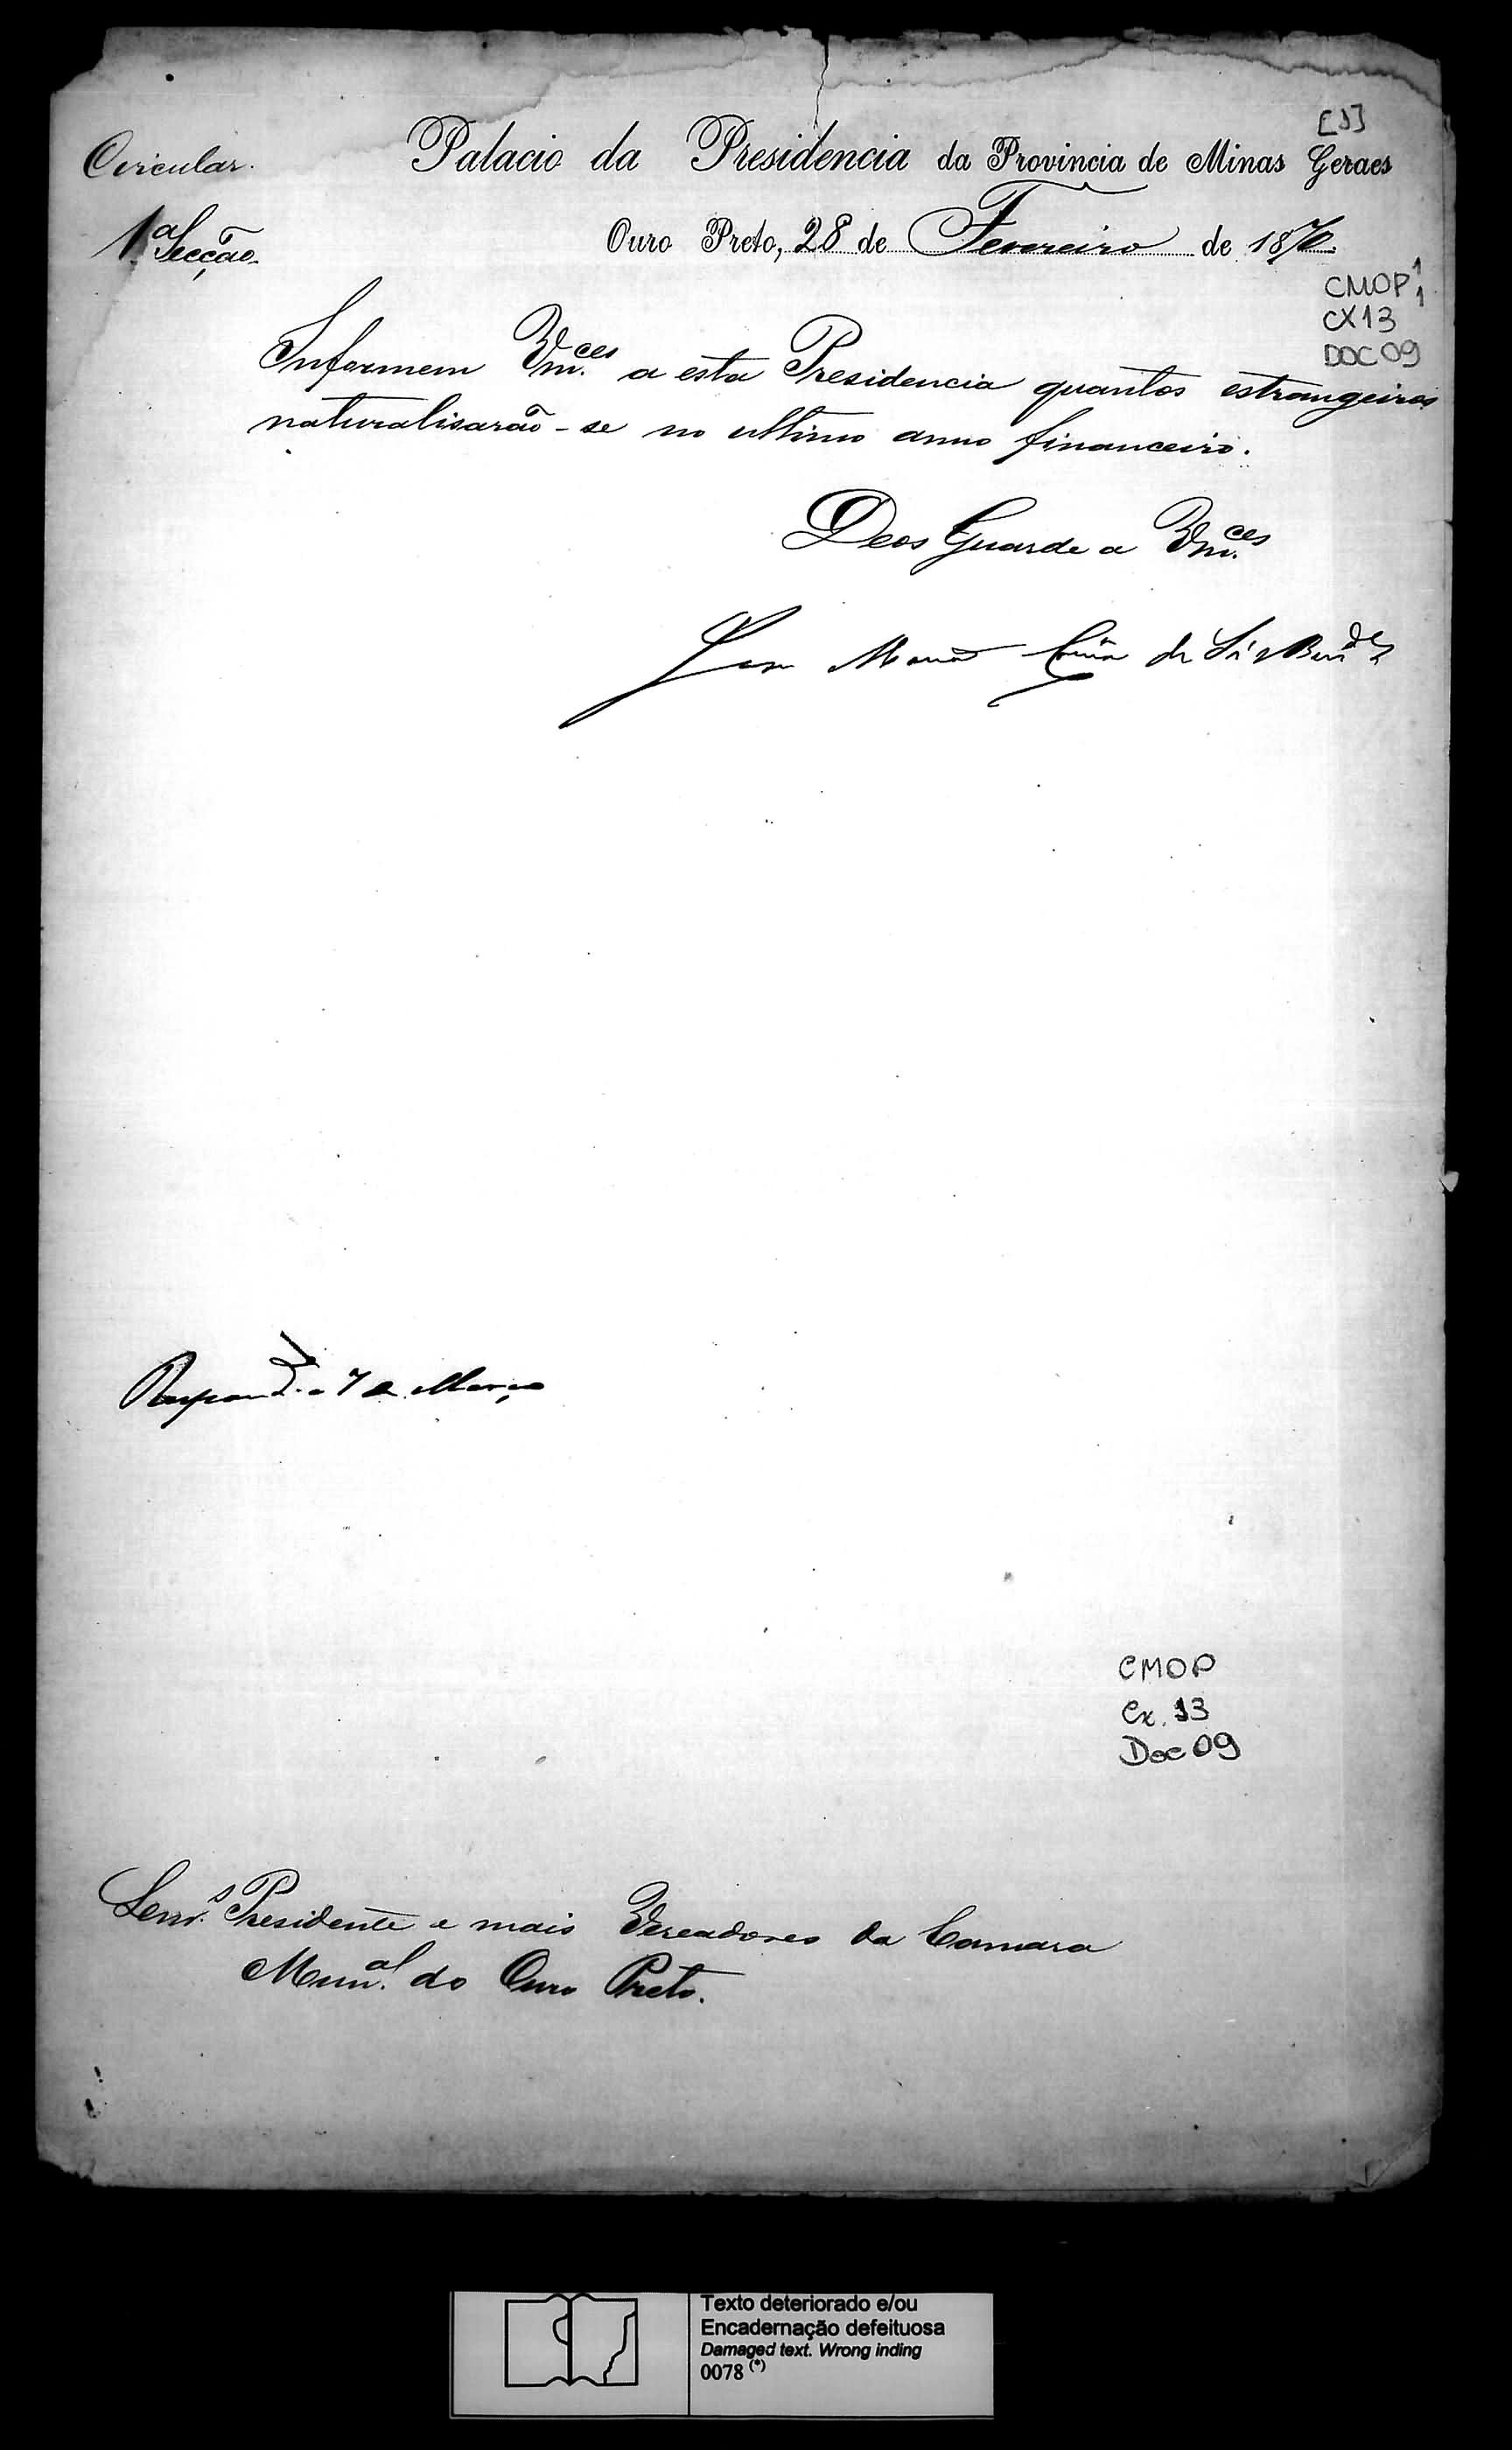 [1]
Circular. Palacio da Presidencia da Provincia de Minas Geraes
1.ª Secção. Ouro Preto, 28 de Fevereiro de 1870.
CMOP 1/1
CX13
DOC 09
Informem Vm.ces a esta Presidencia quantos estrangeiros
naturalisarão-se no ultimo anno financeiro.
Deos Guarde a Vm.ces
José Maria Corrêa de Sá e Benev.des
Respond.da a 7 de Março
CMOP
Cx. 13
Doc 09
Senr.s Presidente e mais Vereadores da Camara
Mun.al do Ouro Preto.
Texto deteriorado e/ou
Encadernação defeituosa
Damaged text. Wrong inding
0078 (*)